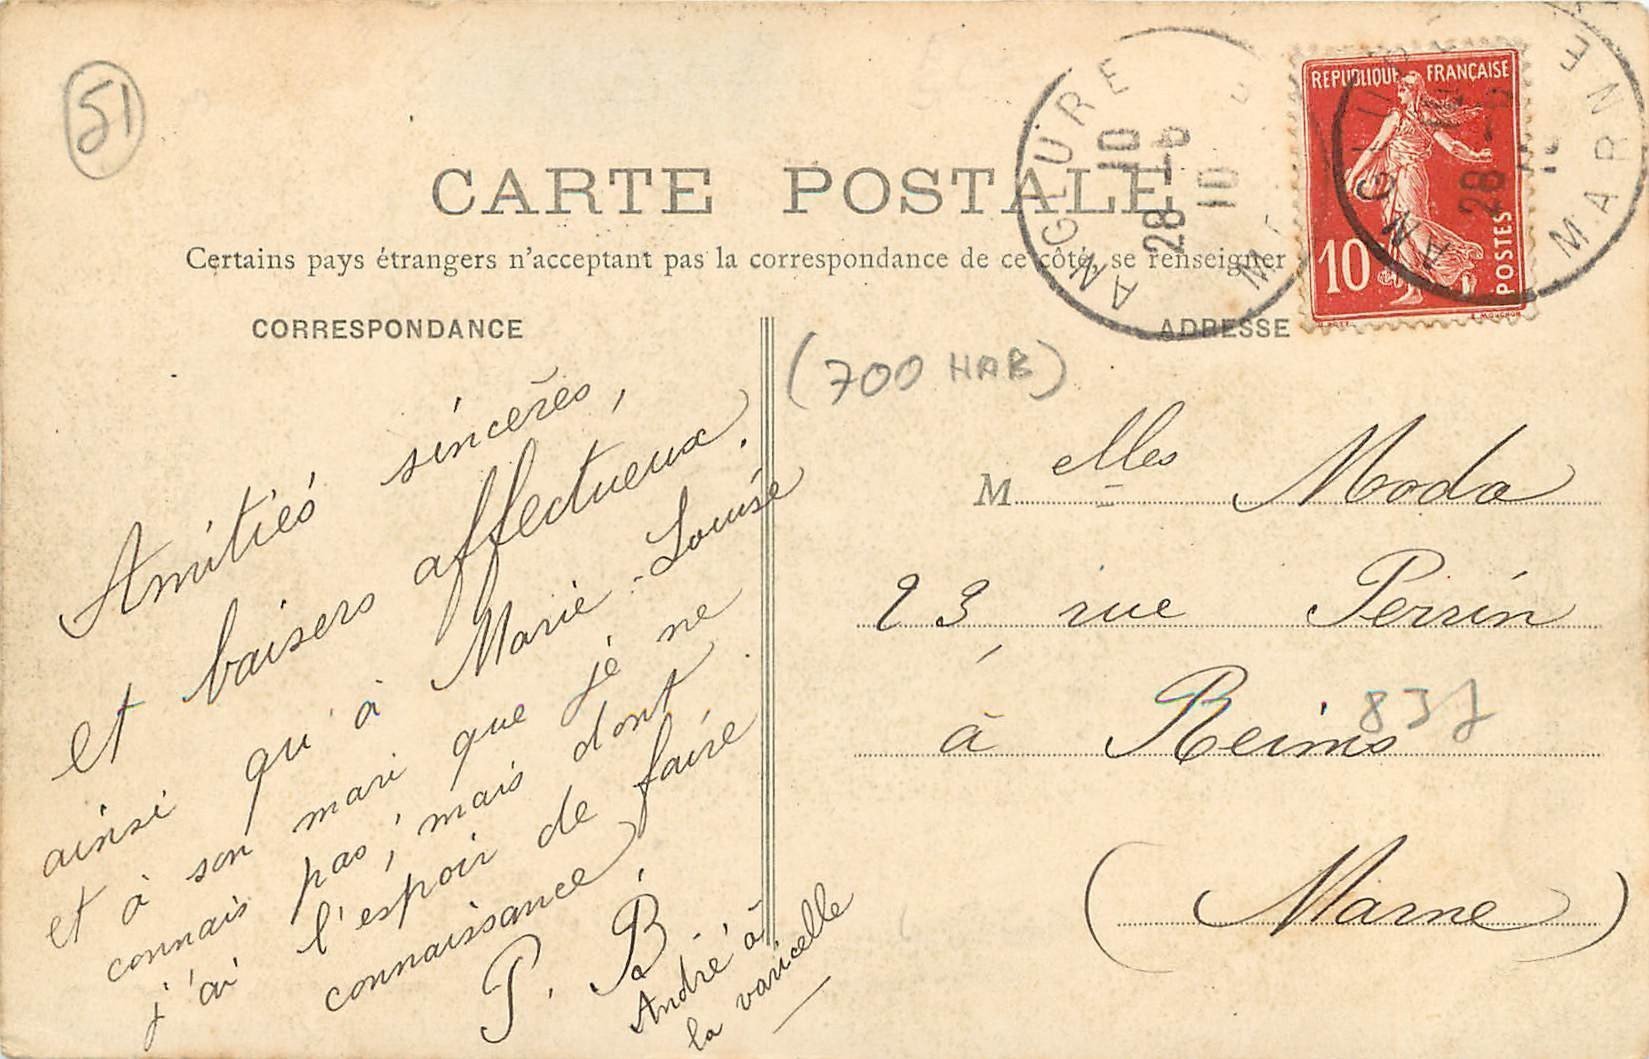 51
CARTE POSTALE
Certains pays étrangers n'acceptant pas la correspondance de ce côté, se renseigner
CORRESPONDANCE
ADRESSE
ANGLURE
10
28 -6
10
REPUBLIQUE FRANÇAISE
10
POSTES
ANGLURE
28 -6
MARNE
(700 HAB)
Amitiés sincères,
et baisers affectueux.
ainsi qu'à Marie-Louise
et à son mari que je ne
connais pas, mais dont
j'ai l'espoir de faire
connaissance,
P. B.
André à
la varicelle
Melles Moda
23, rue Perrin
à Reims
837
(Marne)